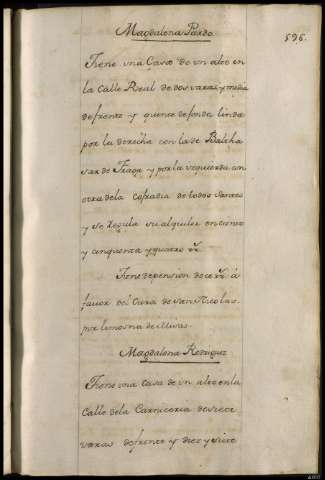 Magdalena Pardo
596.
Tiene una Casa de un alto en
la Calle Real de dos varas y media
de frente y quince de fondo linda
por la derecha con la de Baltha
sar de Fraga y por la izquierda con
otra de la cofradia de todos Santos
y se regula su alquiler en ciento
y cinquenta y quatro rs.
Tiene de pension de a
favor del Cura de San Nicolas
por limosna de Misas.
Magdalena Rodriguez
Tiene una casa de un alto en la
Calle de la Carniceria de siete
varas de frente y diez y siete